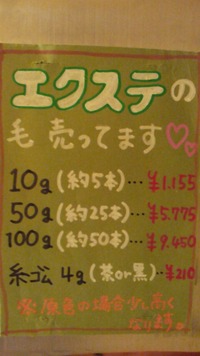 エクステの
毛 売ってます♡♡
10g(約5本)…¥1.155
50g(約25本)…¥5.775
100g(約50本)…¥9.450
糸ゴム 4g(茶or黒)…¥210
※原色の場合少し高く
なります。